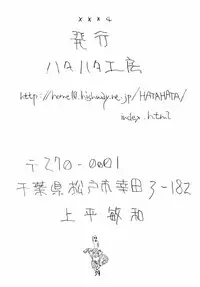 ××××
発行
ハタハタ工房
http://home10.highway.ne.jp/HATAHATA/
index.html
〒270-0001
千葉県松戸市幸田3-182
上平敏和